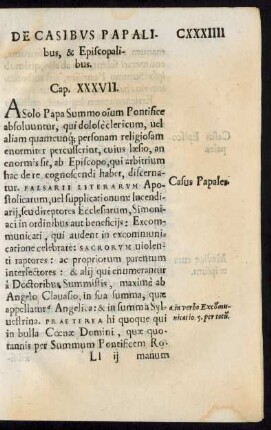 DE CASIBVS PAPALI- CXXXIIII
bus, & Episcopali-
bus.
Cap. XXXVII.
A Solo Papa Summo oīum Pontifice
absoluuntur, qui dolosè clericum, uel
aliam quamcunq; personam religiosam
enormiter percusserint, cuius læsio, an
enormis sit, ab Episcopo, qui arbitrium
hac de re cognoscendi habet, discerna-
tur. FALSARII LITERARVM Apo- Casus Papales.
stolicarum, uel supplicationum: Incendi-
arij, seu direptores Ecclesiarum, Simoni-
aci in ordinibus aut beneficijs: Excom-
municati, qui audent in excommuni-
catione celebrare: SACRORVM uiolenti
raptores: ac propriorum parentum
interfectores: & alij qui enumerantur
à Doctoribus Summistis, maximè ab
Angelo Clauasio, in sua summa, quæ
appellatur Angelica: & in summa Syl- a. in verbo Excōmu-
uestrina. PRAETEREA hi quoque qui nicatio. 5. per totū.
in bulla Cœnæ Domini, quæ quo-
tannis per Summum Pontificem Ro-
Ll ij manum